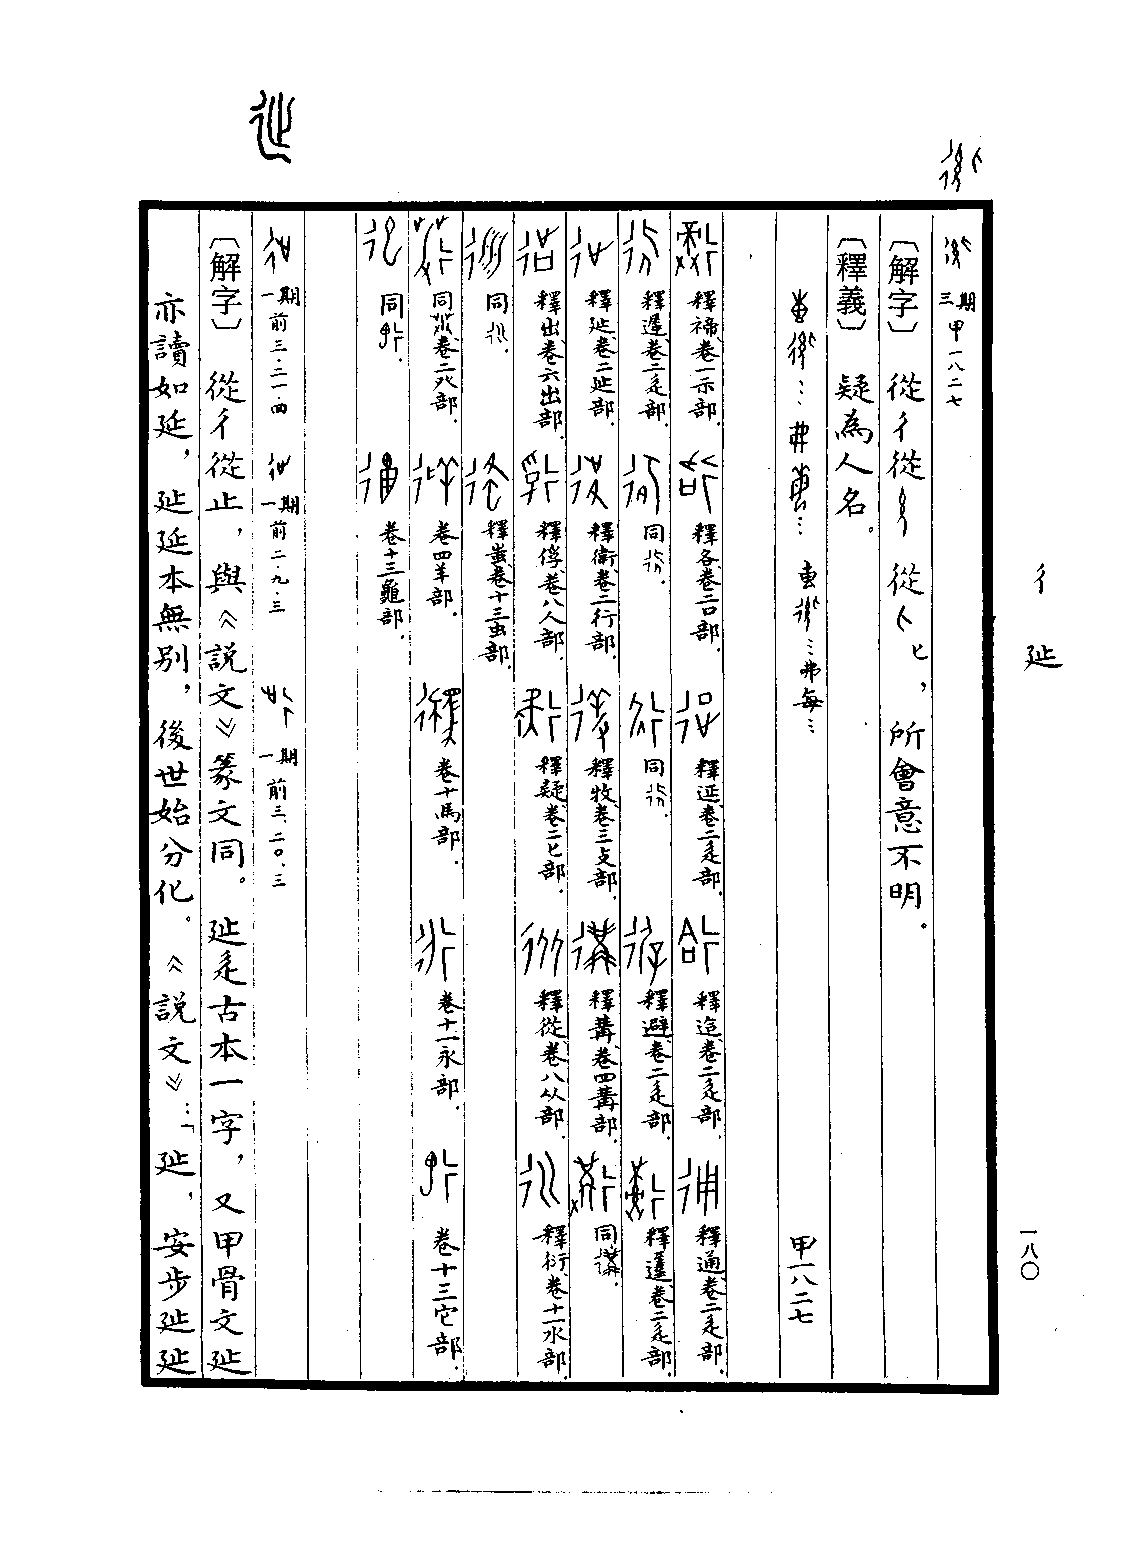 彳 㢟
一八〇
三期 甲一八二七
〔解字〕 從彳從 從卜匕,所會意不明。
〔釋義〕 疑為人名。
叀 … 弗 … 叀 … 弗每… 甲一八二七
釋禘、卷一示部. 釋各、卷二口部. 釋延、卷二辵部. 釋迨、卷二辵部. 釋通、卷二辵部.
釋遲、卷二辵部. 同 . 同 . 釋避、卷二辵部. 釋 、卷二辵部.
釋㢟、卷二㢟部. 釋衛、卷二行部. 釋牧、卷三攴部. 釋冓、卷四冓部. 同 .
釋出、卷六出部. 釋俘、卷八人部. 釋疑、卷二匕部. 釋從、卷八从部. 釋衍、卷十一水部.
同 . 釋蚩、卷十三虫部.
同 、卷二八部. 卷四羊部. 卷十馬部. 卷十一永部. 卷十三它部.
同 . 卷十三龜部.
㢟
一期 前三·二一·四 一期 前二·九·三 一期 前三·二〇·三
〔解字〕 從彳從止,與《說文》篆文同。㢟辵古本一字,又甲骨文㢟
亦讀如延,㢟延本無別,後世始分化。《說文》:「㢟,安步㢟㢟